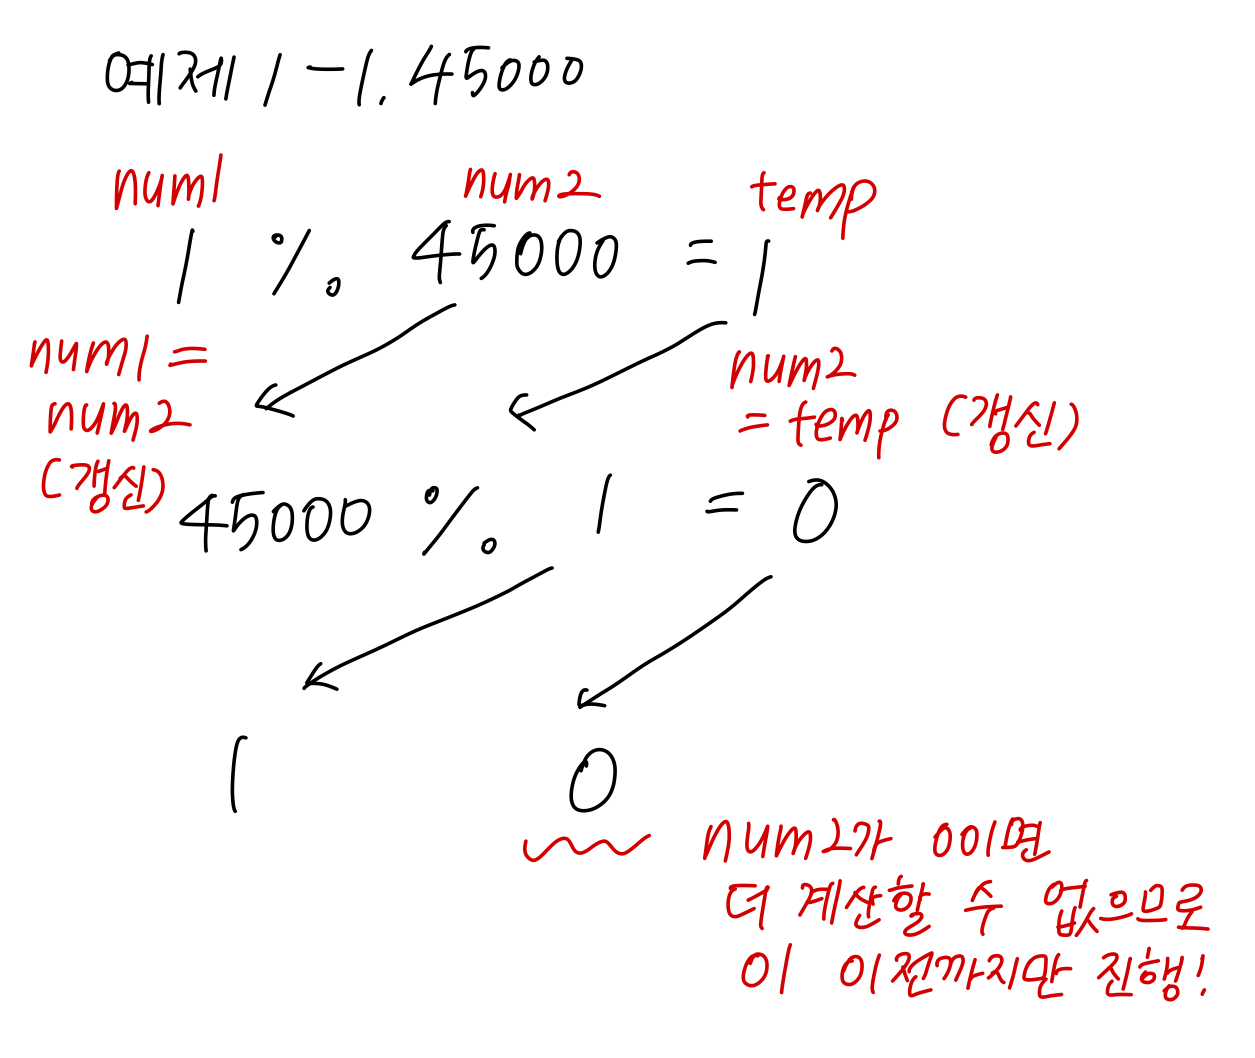 예제 1 - 1, 45000
num1 num2 temp
1 % 45000 = 1
num1 =
num2
(갱신)
num2
= temp (갱신)
45000 % 1 = 0
1 0
num2가 0이면
더 계산할 수 없으므로
이 이전까지만 진행!